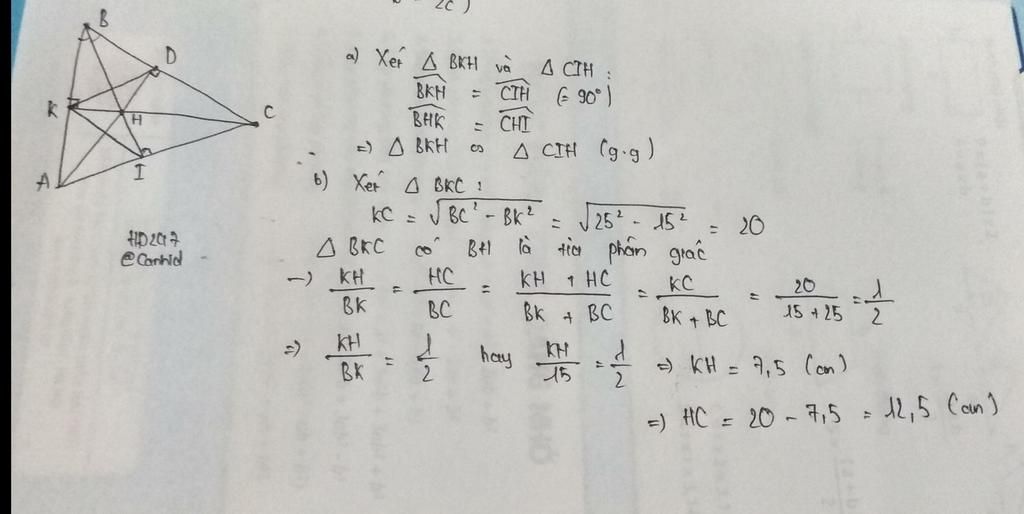 2c)
B
D
K
H
C
I
A
HD247
@Canhid
a) Xét Δ BKH và Δ CIH :
$\widehat{BKH}$ = $\widehat{CIH}$ (= 90°)
$\widehat{BHK}$ = $\widehat{CHI}$
=> Δ BKH ∽ Δ CIH (g.g)
b) Xét Δ BKC :
KC = $\sqrt{BC^2 - BK^2}$ = $\sqrt{25^2 - 15^2}$ = 20
Δ BKC có BH là tia phân giác
-> $\frac{KH}{BK}$ = $\frac{HC}{BC}$ = $\frac{KH + HC}{BK + BC}$ = $\frac{KC}{BK + BC}$ = $\frac{20}{15 + 25}$ = $\frac{1}{2}$
=> $\frac{KH}{BK}$ = $\frac{1}{2}$ hay $\frac{KH}{15}$ = $\frac{1}{2}$ => KH = 7,5 (cm)
=> HC = 20 - 7,5 = 12,5 (cm)